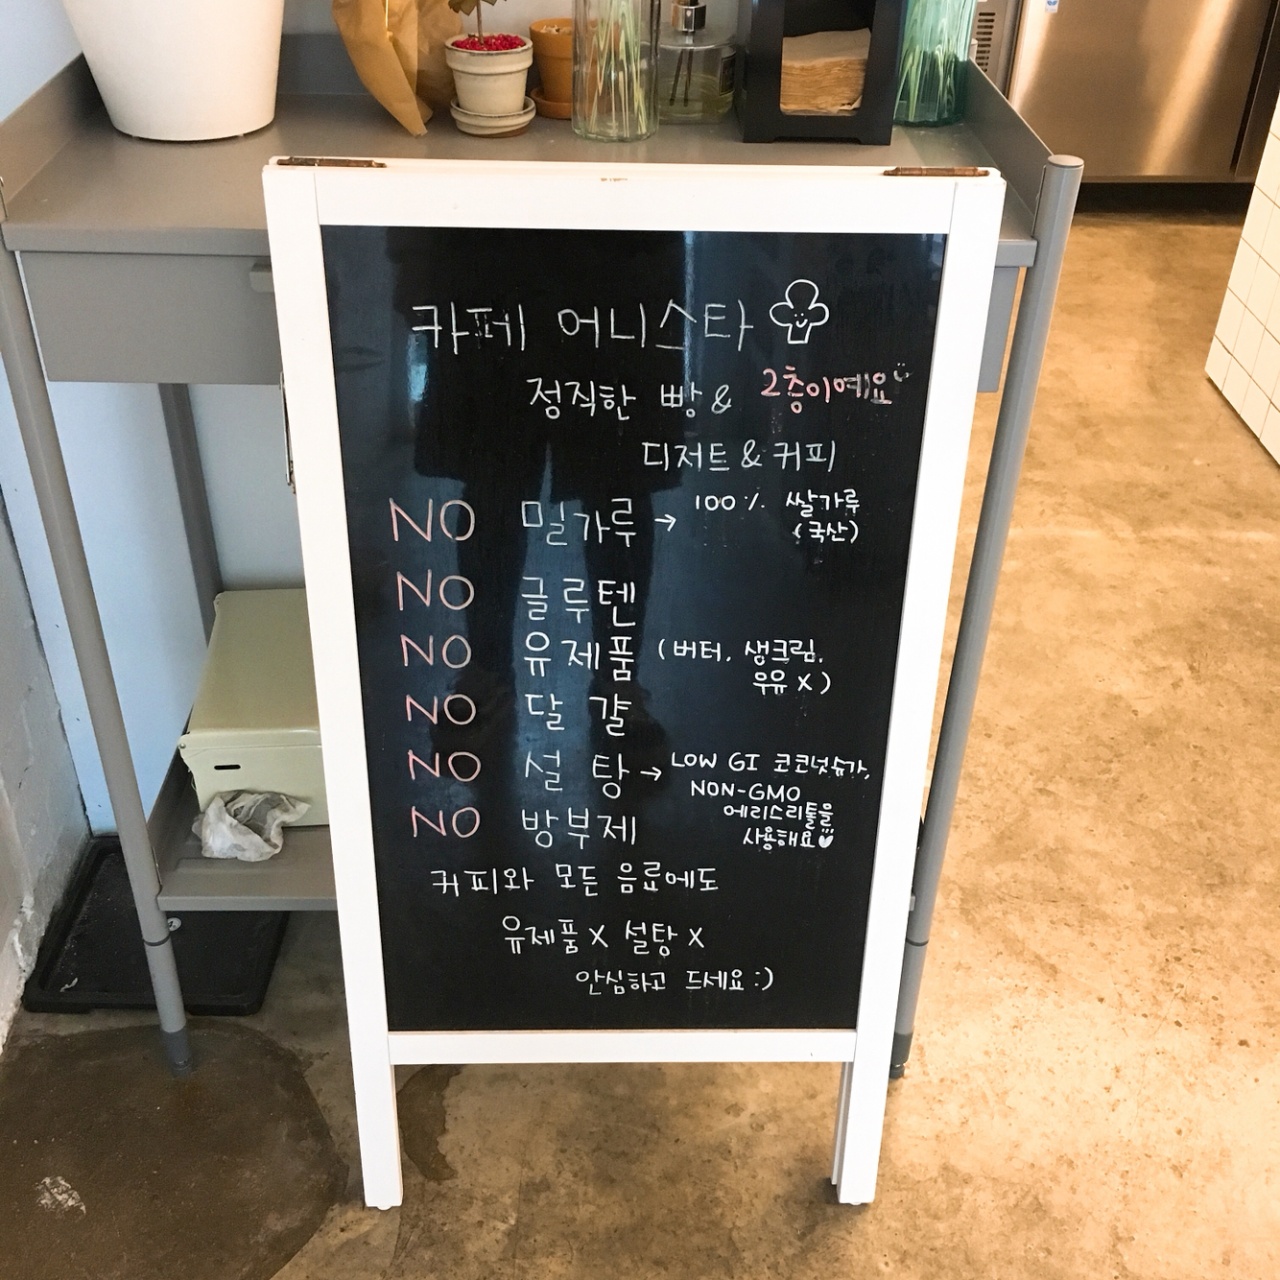 카페 어니스타
정직한 빵 & 2층이예요
디저트 & 커피
NO 밀가루 → 100% 쌀가루
(국산)
NO 글루텐
NO 유제품 (버터, 생크림,
우유 X)
NO 달걀
NO 설탕 → LOW GI 코코넛슈가,
NON-GMO
에리스리톨을
사용해요
NO 방부제
커피와 모든 음료에도
유제품 X 설탕 X
안심하고 드세요 :)